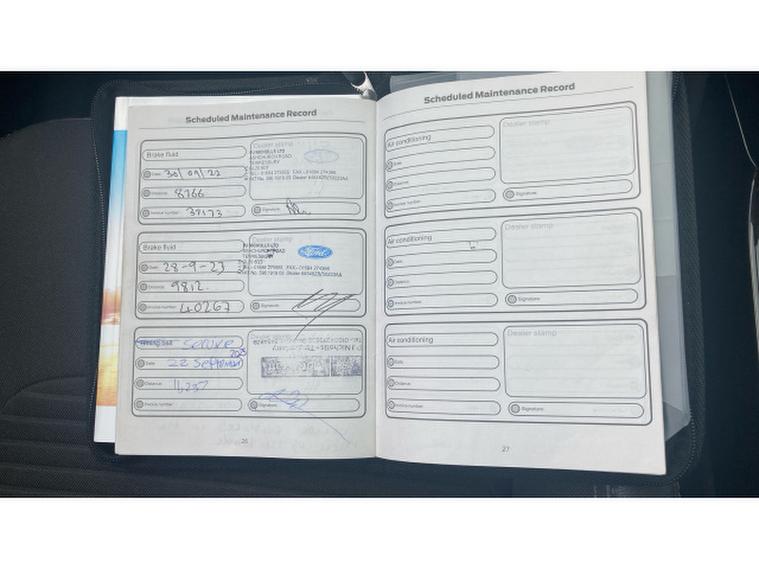 Scheduled Maintenance Record
Brake fluid
Date 30/09/22
Distance 8766
Invoice number 37173
Dealer stamp
ASHCHURCH ROAD
TEWKESBURY
Signature
Brake fluid
Date 28-9-23
Distance 9812
Invoice number 40267
Dealer stamp
Ford
Signature
Service
Date 22 September
Distance
Invoice number
Signature
26
Scheduled Maintenance Record
Air conditioning
Date
Distance
Invoice number
Dealer stamp
Signature
Air conditioning
Date
Distance
Invoice number
Dealer stamp
Signature
Air conditioning
Date
Distance
Invoice number
Dealer stamp
Signature
27